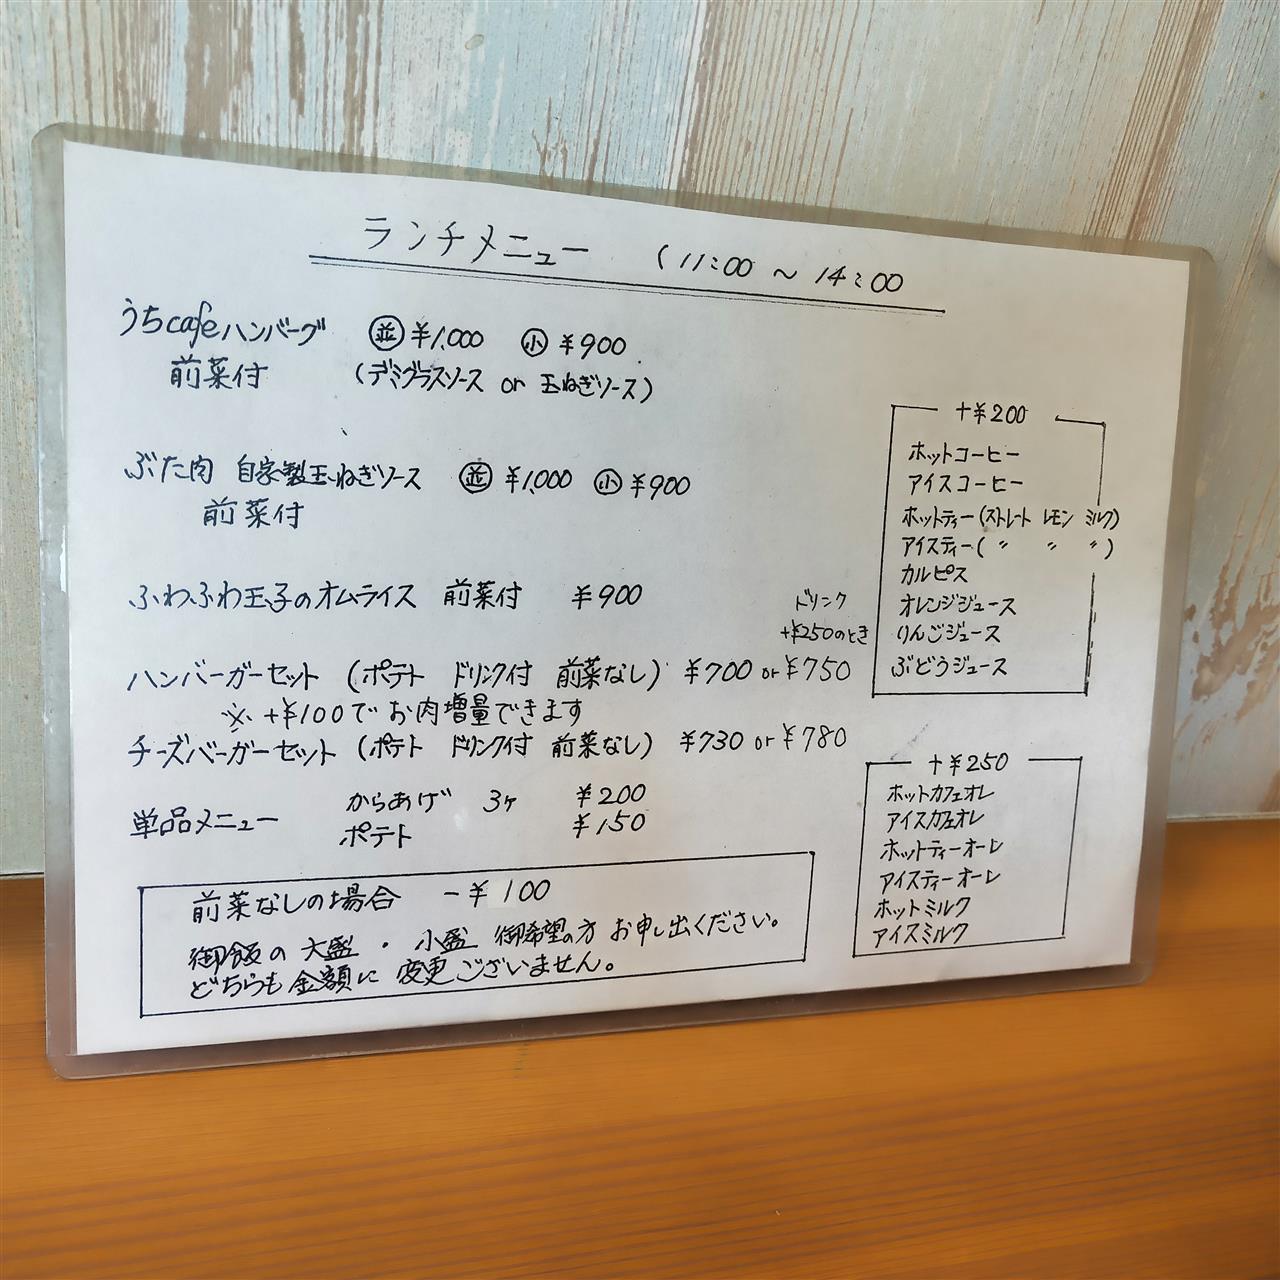 ランチメニュー (11:00 ～ 14:00
うちcafeハンバーグ ㊀並 ¥1,000 ㊀小 ¥900
前菜付 (デミグラスソース or 玉ねぎソース)
ぶた肉 自家製玉ねぎソース 並 ¥1,000 小 ¥900
前菜付
ふわふわ玉子のオムライス 前菜付 ¥900
ドリンク
+¥250のとき
ハンバーガーセット (ポテト ドリンク付 前菜なし) ¥700 or ¥750
※ +¥100で お肉増量できます
チーズバーガーセット (ポテト ドリンク付 前菜なし) ¥730 or ¥780
単品メニュー からあげ 3ヶ ¥200
ポテト ¥150
前菜なしの場合 -¥100
御飯の 大盛 ・ 小盛 御希望の方 お申し出ください。
どちらも金額に 変更ございません。
+¥200
ホットコーヒー
アイスコーヒー
ホットティー(ストレート レモン ミルク)
アイスティー( 〃 〃 〃 )
カルピス
オレンジジュース
りんごジュース
ぶどうジュース
+¥250
ホットカフェオレ
アイスカフェオレ
ホットティーオーレ
アイスティーオーレ
ホットミルク
アイスミルク